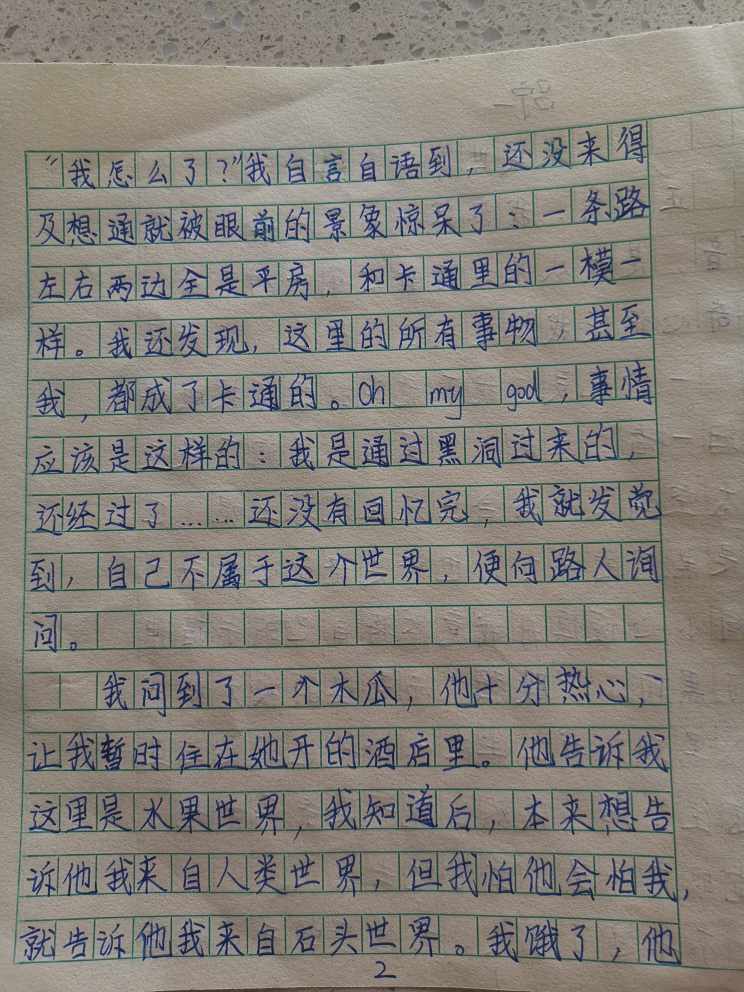 “我怎么了?”我自言自语到，还没来得
及想通就被眼前的景象惊呆了：一条路
左右两边全是平房，和卡通里的一模一
样。我还发现，这里的所有事物，甚至
我，都成了卡通的。Oh my god，事情
应该是这样的：我是通过黑洞过来的，
还经过了……还没有回忆完，我就发觉
到，自己不属于这个世界，便向路人询
问。
我问到了一个木瓜，他十分热心，
让我暂时住在她开的酒店里。他告诉我
这里是水果世界，我知道后，本来想告
诉他我来自人类世界，但我怕他会怕我，
就告诉他我来自石头世界。我饿了，他
2